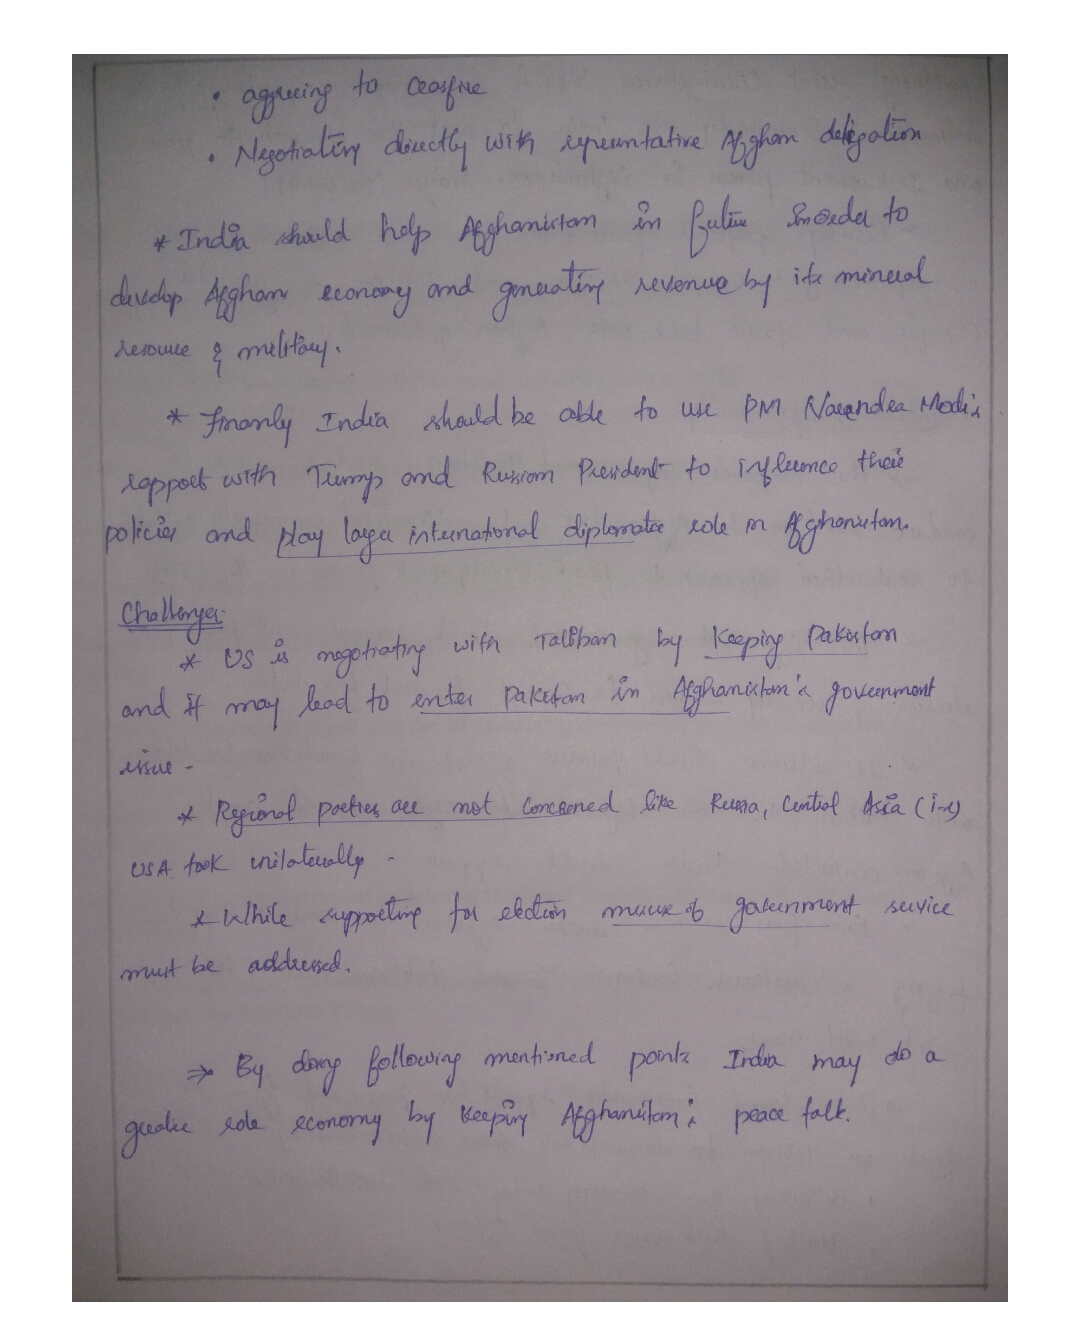 • agreeing to Ceasfire
• Negotiating directly with representative Afghan delegation
* India should help Afghanistan in future Inorder to
develop Afghan economy and generating revenue by its mineral
resource & military.
* Finanly India should be able to use PM Narendra Modi's
rapport with Trump and Russian President to influence their
policies and play larger international diplomatic role in Afghanistan.
Challenges:
* US is negotiating with Taliban by Keeping Pakistan
and it may lead to enter Pakistan in Afghanistan's government
issue -
* Regional parties are not Concerned like Russia, Central Asia (i-e)
USA took unilaterally -
* While supporting for election of government service
must be addressed.
⇒ By doing following mentioned points India may do a
greater role economy by Keeping Afghanistan's peace talk.